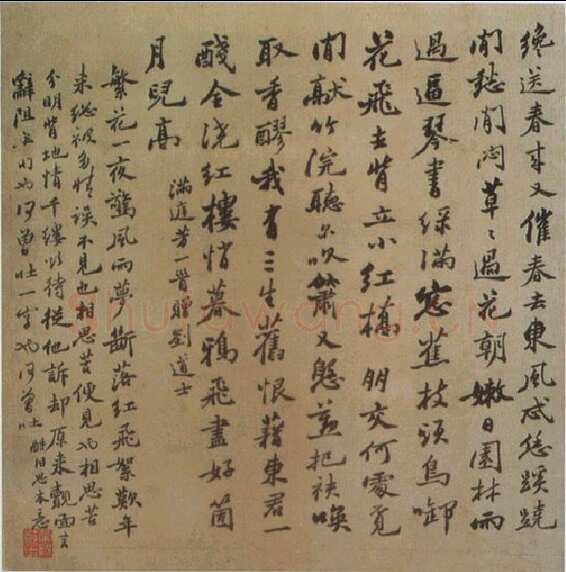 送春來又催春去東風恁蹊蹺
閒愁閒悶草草過花朝嫩日園林雨
過逼琴書綠滿窓蕉枝頭鳥啣
花飛去背立小紅橋朋交何處覓
閒竹院聽尔吹簫又把袂喚
取香醪我有三生舊恨藉東君一
醆全澆紅樓悄暮鴉飛盡好箇
月兒高
滿庭芳一首贈劉道士
繁花一夜驚風雨夢斷落紅飛絮歎年
來總被多情誤不見也相思苦便見也相思苦
分明背地情千縷待從他訴却原來覿面言
辭阻一字也何曾吐一字也何曾吐
Shufawang.cn